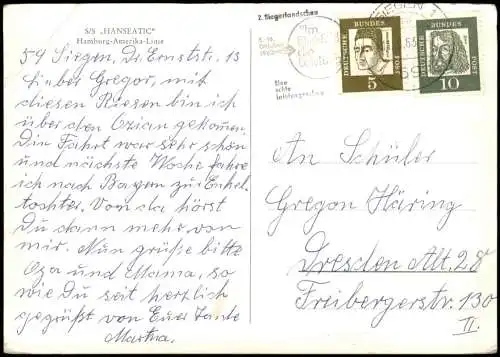 S/S „HANSEATIC"
Hamburg-Amerika-Linie
59 Siegen, Dr. Ernststr. 13
Lieber Gregor, mit
diesen Riesen bin ich
über den Ozian gekommen.
Die Fahrt war sehr schön
und nächste Woche fahre
ich nach Bayern zur Enkel-
tochter. Von da hörst
Du dann mehr von
mir. Nun grüße bitte
Opa und Mama, so
wie Du seit herzlich
gegrüßt von Eurer Tante
Martha.
2. Siegerlandschau
Eine
echte
Leistungsschau
SIEGEN
DEUTSCHE BUNDESPOST
5
DEUTSCHE BUNDESPOST
10
An Schüler
Gregor Häring
Dresden Alt. 28
Freibergerstr. 130
II.